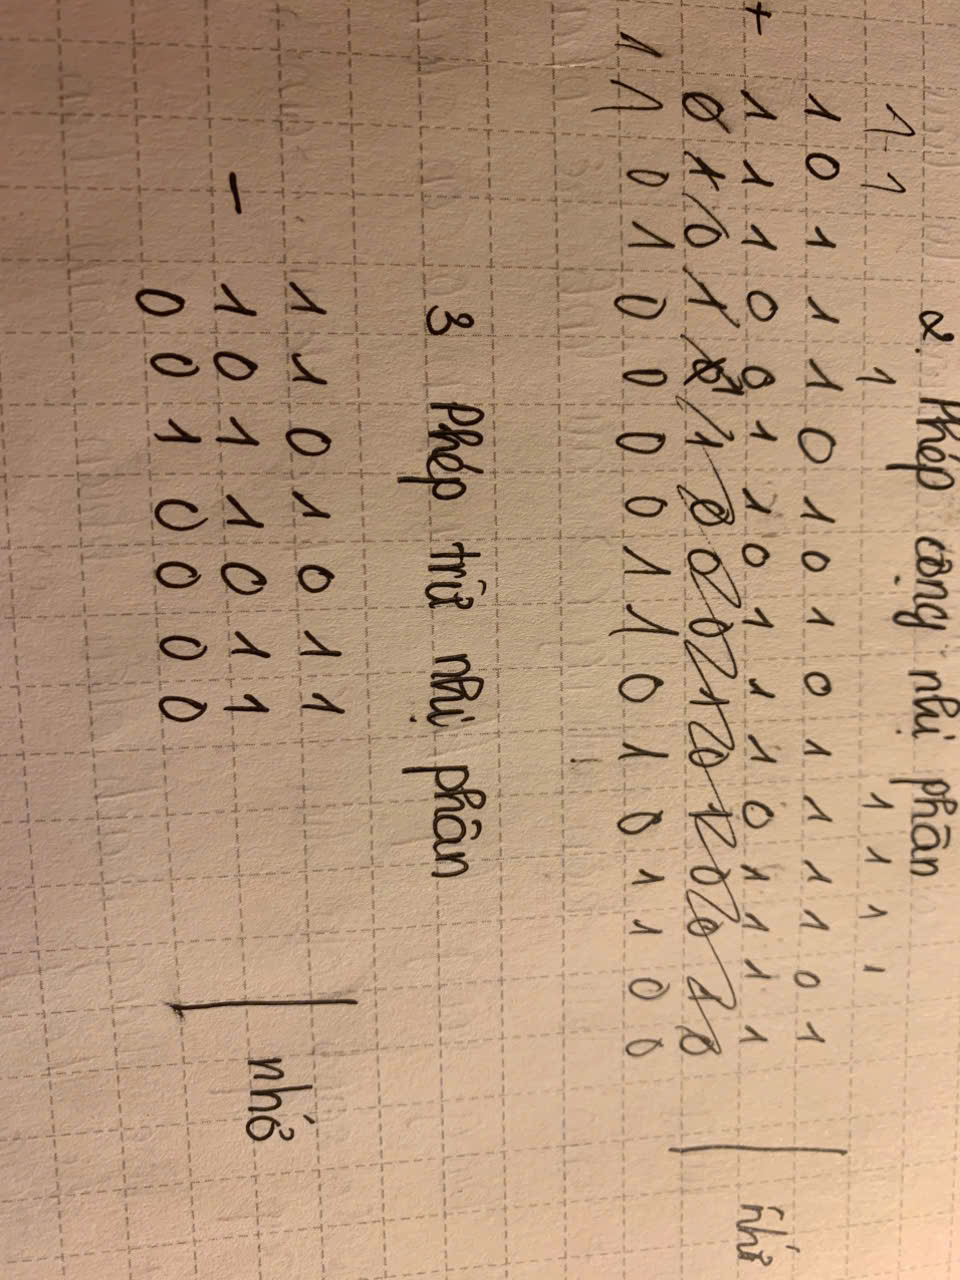 2. Phép cộng nhị phân
1 1 1 1 1 1 1
1 0 1 1 1 0 1 0 1 0 1 1 1 1 0 1
+ 1 1 1 0 0 1 1 0 1 1 1 0 1 1 1 1 nhớ
1 1 0 1 0 0 0 0 1 1 0 1 0 1 1 0 0
3 Phép trừ nhị phân
1 1 0 1 0 1 1
- 1 0 1 1 0 1 1 nhớ
0 0 1 0 0 0 0